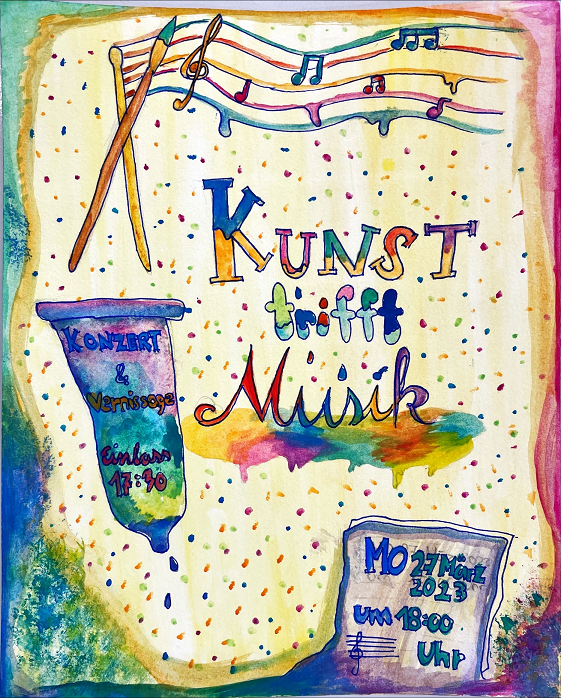 KUNST
trifft
Musik
KONZERT
&
Vernissage
Einlass
17:30
MO 27 März
2023
um 18:00
Uhr